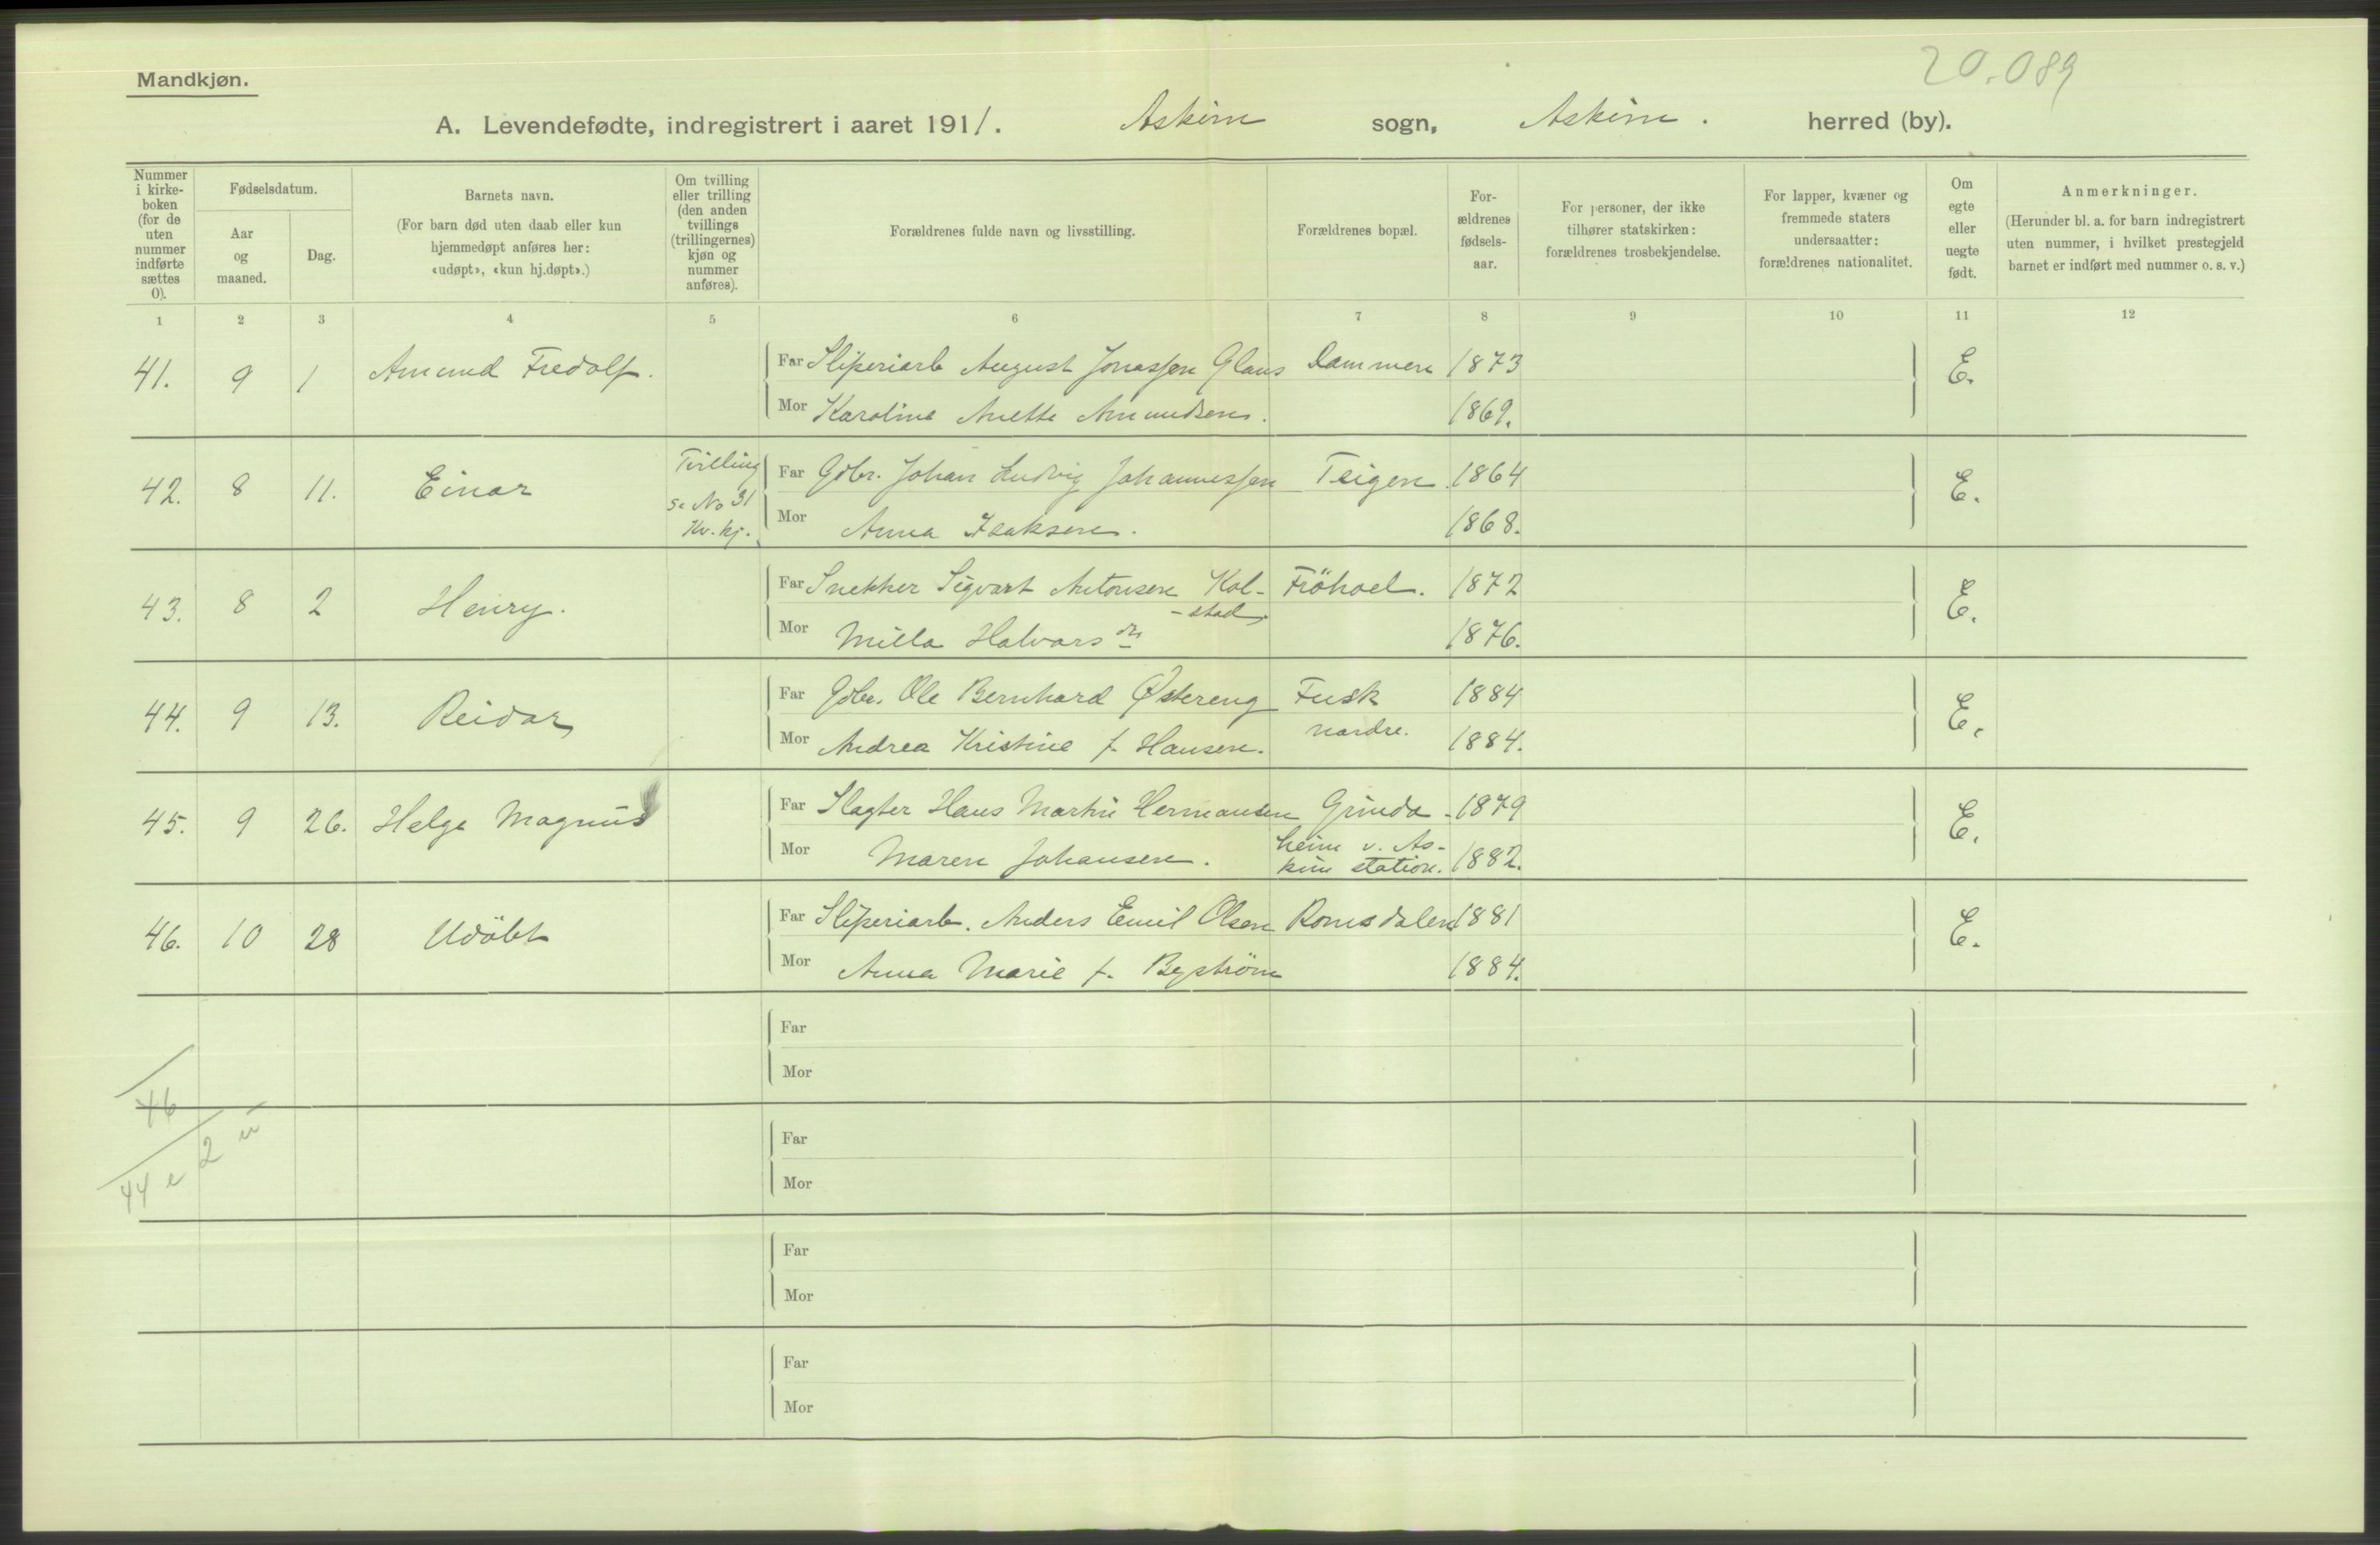 20.089
Mandkjøn.
A. Levendefødte, indregistrert i aaret 1911. Askim sogn, Askim. herred (by).
Nummer i kirke-boken (for de uten nummer indførte sættes 0).
Fødselsdatum.
Aar og maaned.
Dag.
Barnets navn.
(For barn død uten daab eller kun hjemmedøpt anføres her: «udøpt», «kun hj.døpt».)
Om tvilling eller trilling (den anden tvillings (trillingernes) kjøn og nummer anføres).
Forældrenes fulde navn og livsstilling.
Forældrenes bopæl.
For-ældrenes fødsels-aar.
For personer, der ikke tilhører statskirken: forældrenes trosbekjendelse.
For lapper, kvæner og fremmede staters undersaatter: forældrenes nationalitet.
Om egte eller uegte født.
Anmerkninger.
(Herunder bl. a. for barn indregistrert uten nummer, i hvilket prestegjeld barnet er indført med nummer o. s. v.)
1 2 3 4 5 6 7 8 9 10 11 12
41. 9 1 Amund Fredolf. Far Sliperiarb August Jonassen Glaus Dammen 1873 E.
Mor Karoline Anette Amundsen. 1869.
42. 8 11. Einar Tvilling Se No 31 Kv. kj. Far Gdbr. Johan Ludvig Johannessen Teigen 1864 E.
Mor Anna Isaksen. 1868.
43. 8 2 Henry. Far Snekker Sigvart Antonsen Kol- Fröhoel. 1872 E.
-stad.
Mor Milla Halvorsdn 1876.
44. 9 13. Reidar Far Gdbr. Ole Bernhard Østereng Fusk 1884 E.
Mor Andrea Kristine f. Hansen. nordre. 1884.
45. 9 26. Helge Magnus Far Slagter Hans Martin Hermansen Grinda- 1879 E.
Mor Maren Johansen. heim v. As-
kim station. 1882.
46. 10 28 Udöbt Far Sliperiarb. Anders Emil Olsen Romsdalen 1881 E.
Mor Anna Marie f. Byström 1884.
Far
Mor
46
Far
2 u
44 e
Mor
Far
Mor
Far
Mor